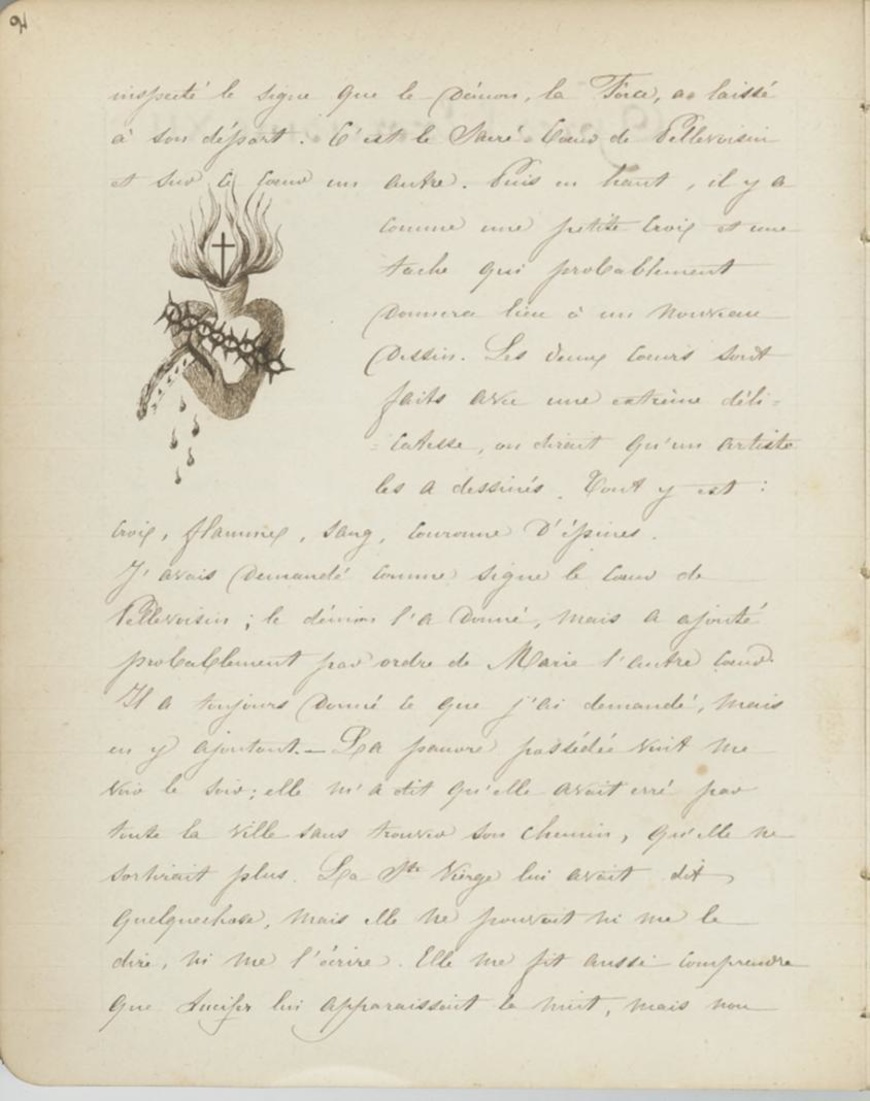 2
inspecté le signe que le Démon, la Force, a laissé
à son départ. C'est le Sacré-Cœur de Pellevoisin
et sur le cœur un autre. Puis en haut, il y a
comme une petite croix et une
tache qui probablement
donnera lieu à un nouveau
Dessin. Les deux cœurs sont
faits avec une extrême déli=
=catesse, on dirait qu'un artiste
les a dessinés. Tout y est :
croix, flammes, sang, couronne D'épines.
J'avais Demandé comme signe le cœur de
Pellevoisin ; le démon l'a Donné, mais a ajouté
probablement par ordre de Marie l'autre cœur.
Il a toujours Donné ce que j'ai demandé, mais
en y ajoutant. — La pauvre possédée vint me
voir le soir ; elle m'a dit qu'elle avait erré par
toute la ville sans trouver son chemin, qu'elle ne
sortirait plus. La Ste Vierge lui avait dit
quelquechose, mais elle ne pouvait ni me le
dire, ni me l'écrire. Elle me fit aussi comprendre
que Lucifer lui apparaissait la nuit, mais non